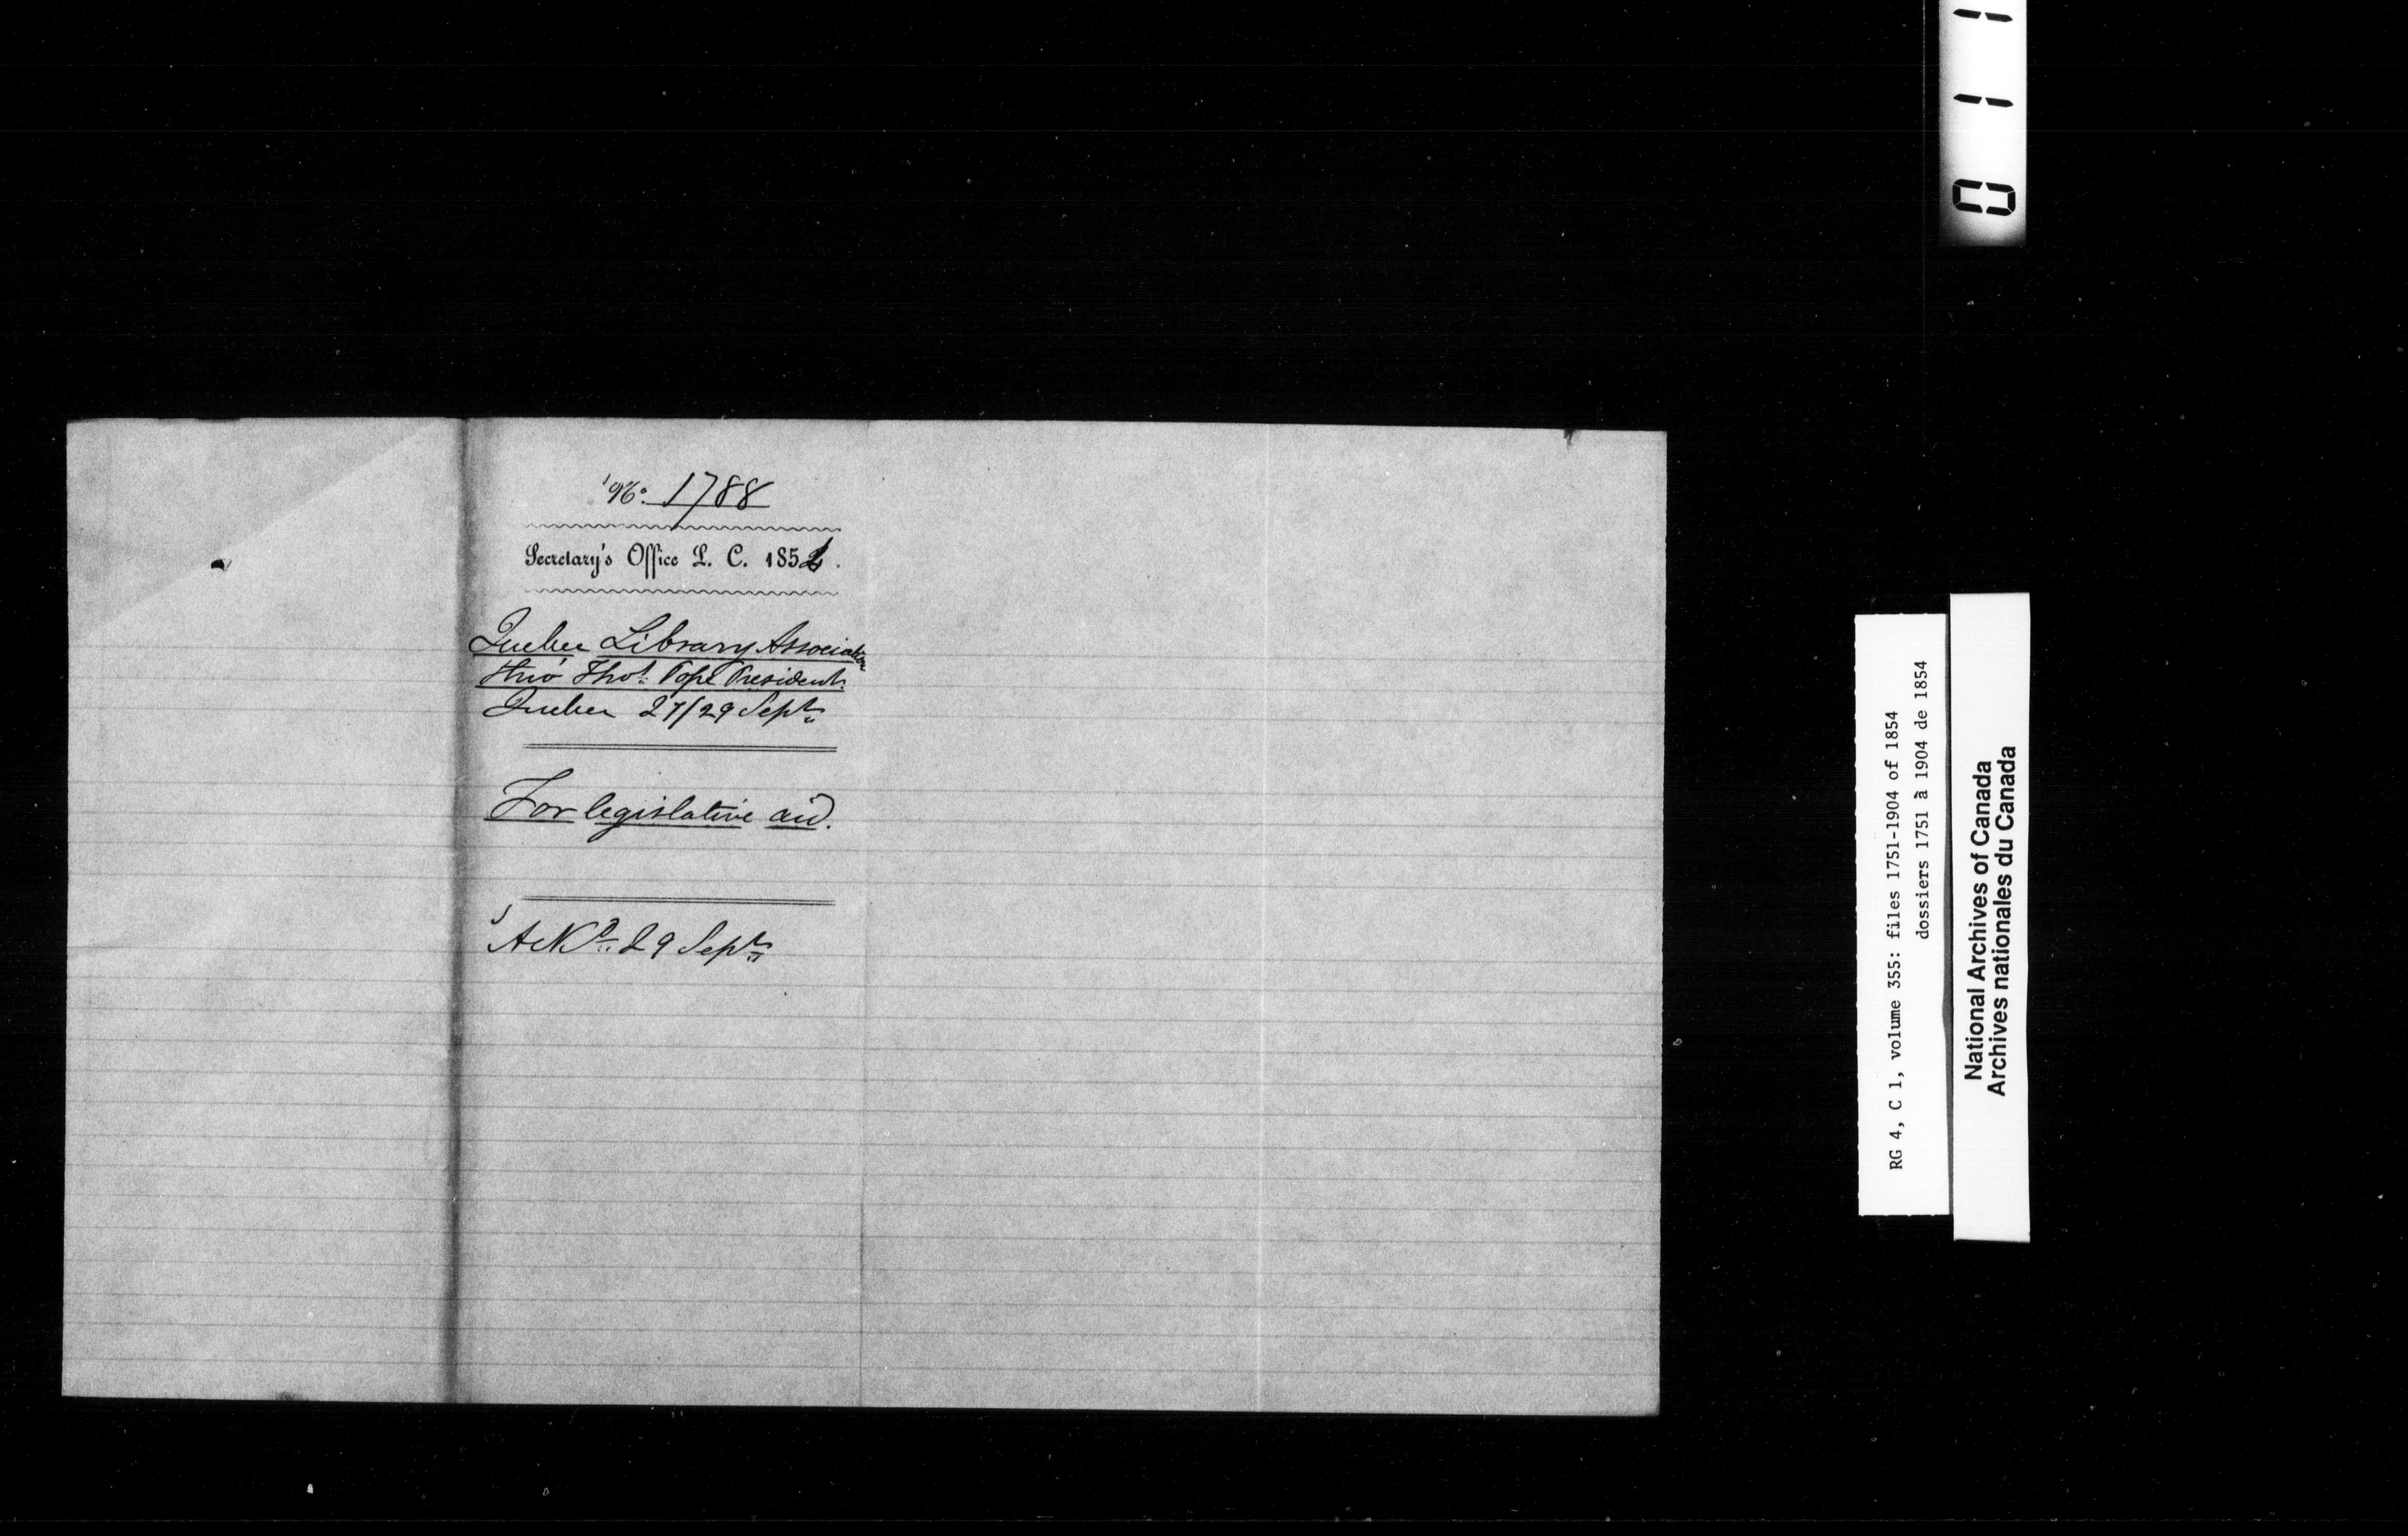 No. 1788
Secretary's Office L. C. 1854.
Quebec Library Association
thro' Thos. Pope President.
Quebec 27/29 Septr.
For legislative aid.
Ackd. 29 Septr.
011
RG 4, C 1, volume 355: files 1751-1904 of 1854
dossiers 1751 à 1904 de 1854
National Archives of Canada
Archives nationales du Canada